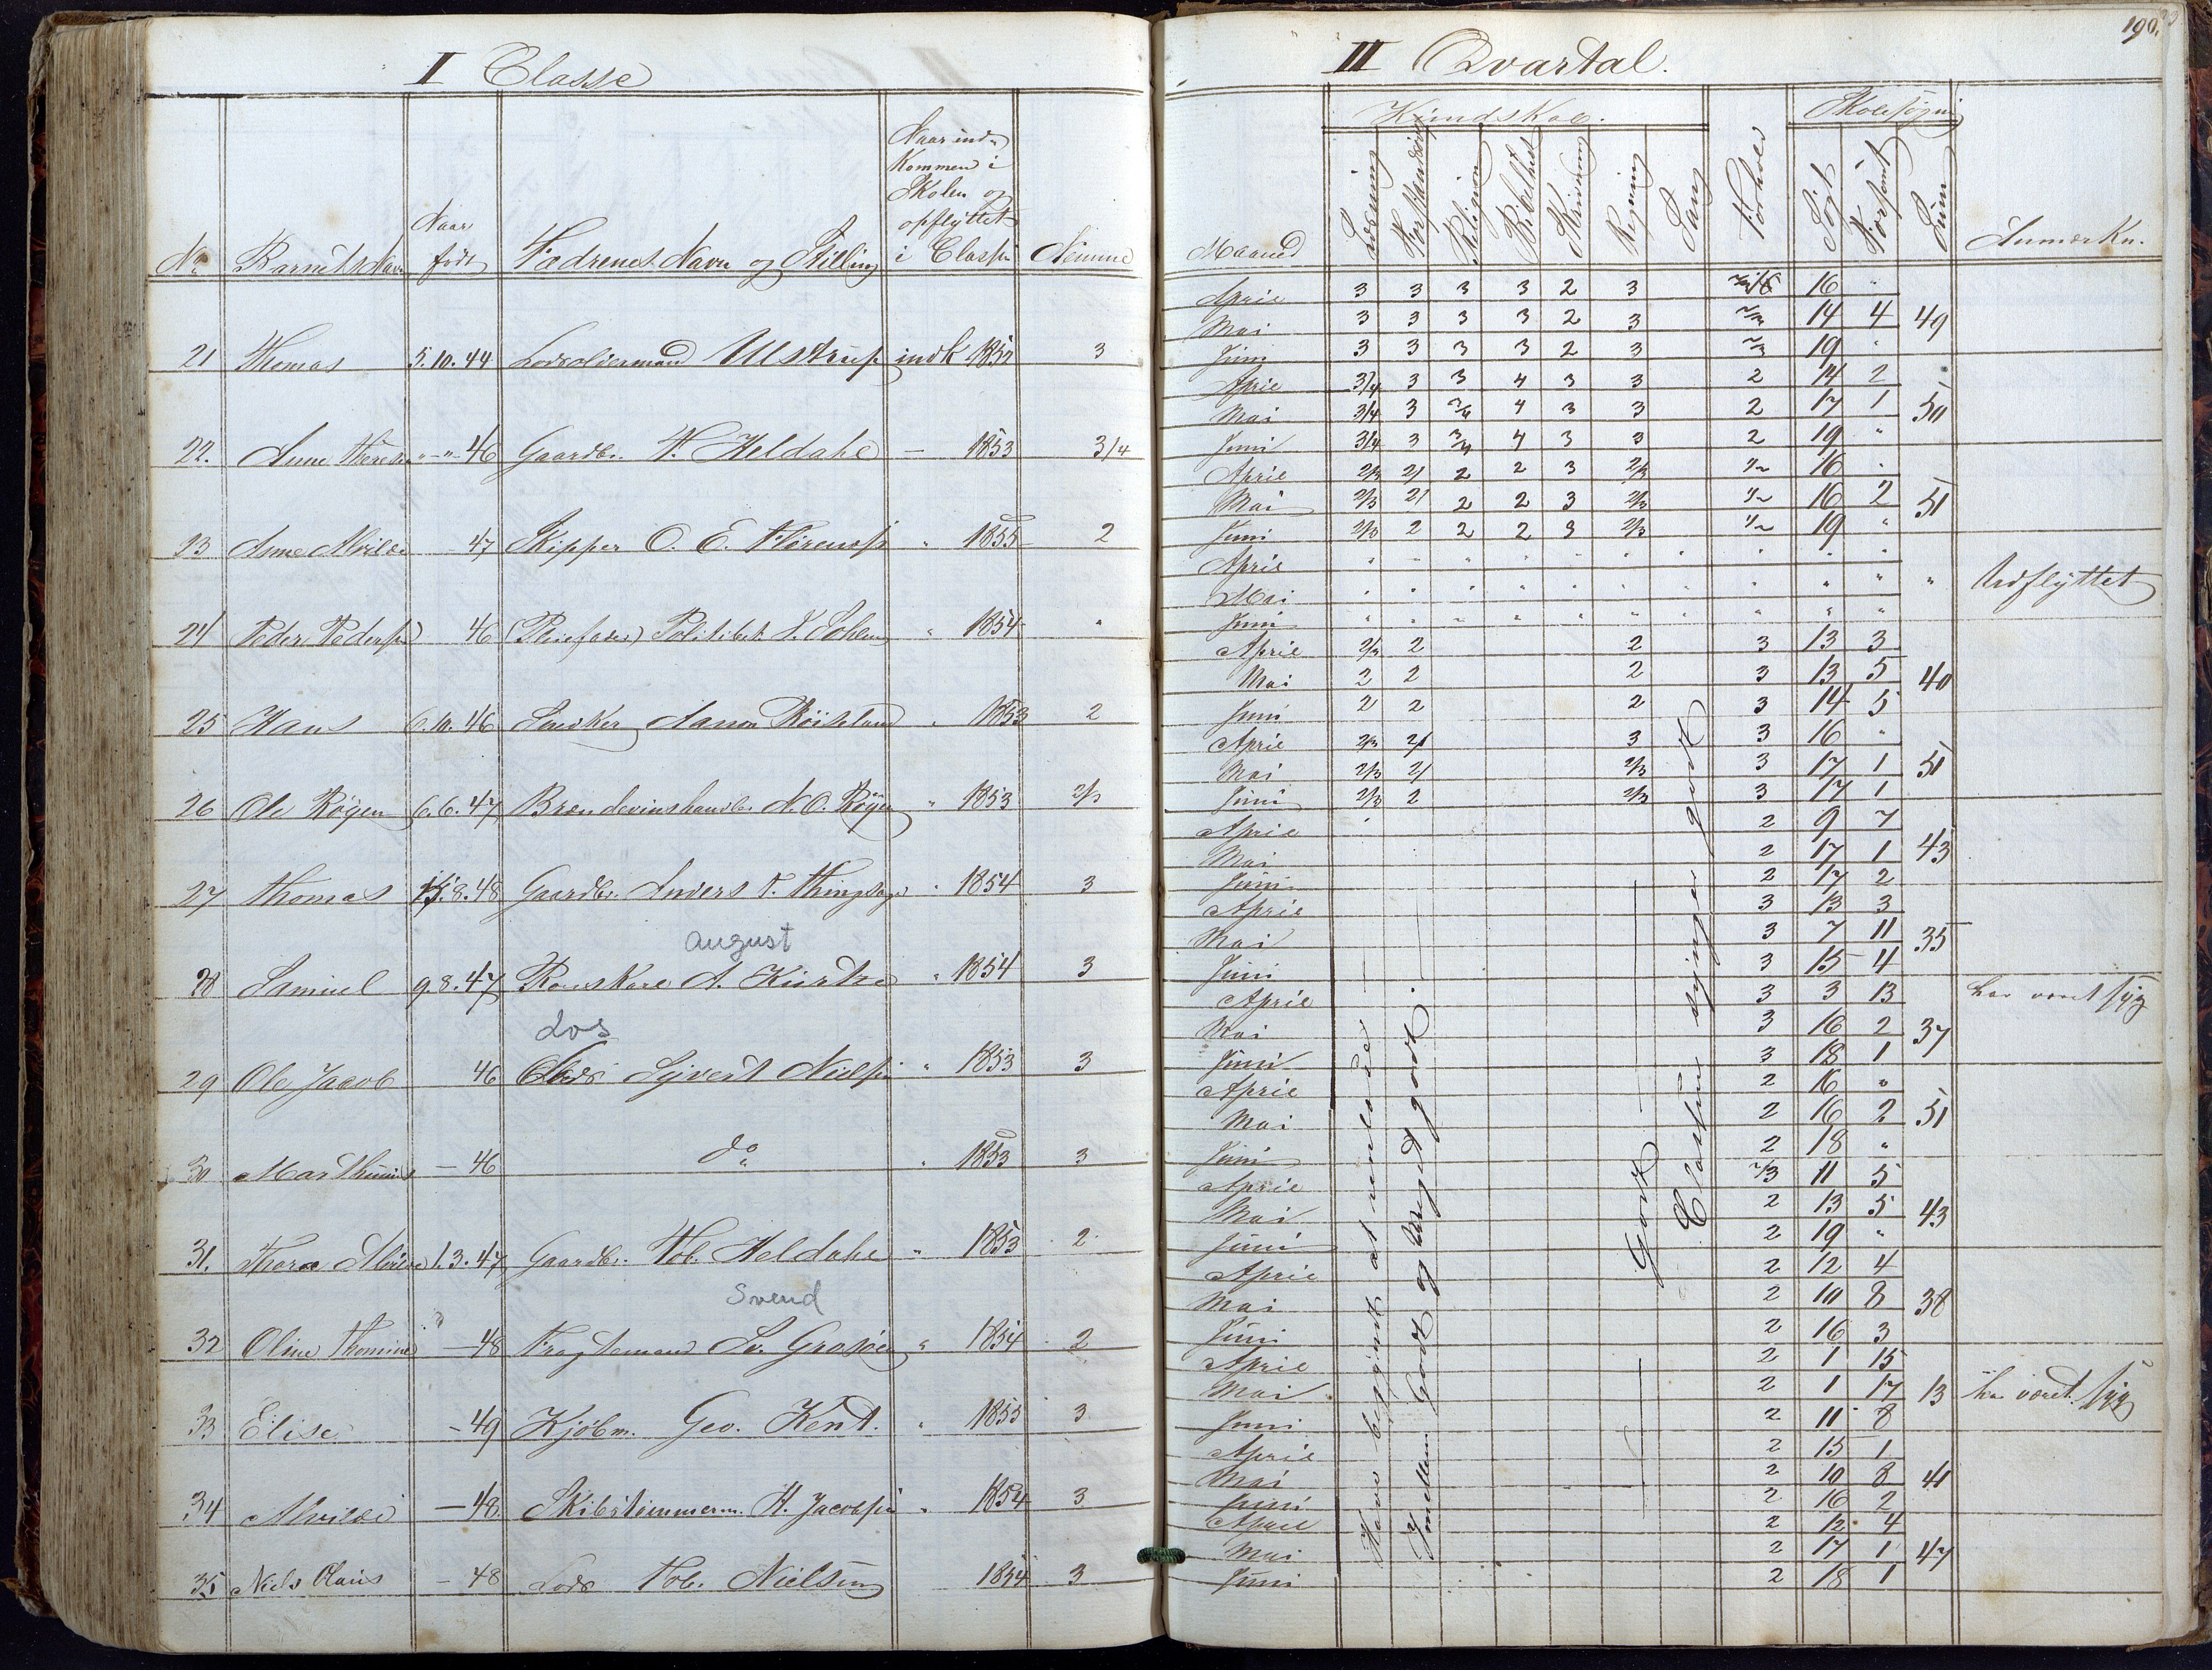 I Classe
No Barnets Navn Naar født Fædrenes Navn og Stilling Naar ind- kommen i Skolen og opflyttet i Classen Nemme
21 Thomas 5.10.44 Lodsolderman Ulstrup indk 1852 3
22. Anne Therese " - " 46 Gaardbr. T. Heldahl — 1853 3/4
23 Anne Alvilde - 47 Skipper O. E. " 1855 2
24 Peder Pedersen 46 (Pleiefader) Politibet. " 1854 "
25 Hans 6.10.46 Snedker Aanon " 1853 2
26 Ole Røgen 6.6.47 Brændevinshandl. N. O. Røgen " 1853 2/3
27 Thomas 15.8.48 Gaardbr. Anders T. " 1854 3
august
28 Samuel 9.8.47 A. " 1854 3
Los
29 Ole Jacob 46 Lods Syvert Nielsen " 1853 3
30 Marthinius — 46 do " 1853 3
31. Thora Alvilde 1.3.47 Gaardbr. Tob. Heldahl " 1853 2
Svend
32 Oline Thomine — 48 Fragtemand Sv. Grosøe " 1854 2
33 Elise - 49 Kjøbm. Geo. Kent. " 1855 3
34 Alvilde — 48 Skibstømmerm. H. Jacobsen " 1854 3
35 Niels Olaus - 48 Lods Tob. Nielsen 1854 3
190.
III Qvartal.
Kundskab. Skolesøgning
Maaned Læsning Forstandsøv. Religion Bibelhist Skrivning Regning Sang Forhold Søgt Forsømt Sum Anmærkn.
April 3 3 3 3 2 3 16 "
Mai 3 3 3 3 2 3 2/3 14 4 49
Juni 3 3 3 3 2 3 2/3 19 "
April 3/4 3 3 4 3 3 2 14 2
Mai 3/4 3 3/4 4 3 3 2 17 1 50
Juni 3/4 3 3/4 4 3 3 2 19 "
April 2/3 2/1 2 2 3 2/3 1/2 16 "
Mai 2/3 2/1 2 2 3 2/3 1/2 16 2 51
Juni 2/3 2 2 2 3 2/3 1/2 19 "
April " " " " " " " " " "
Mai " " " " " " " " " " " Udflyttet
Juni " " " " " " " " " "
April 2/3 2 2 3 13 3
Mai 2 2 2 3 13 5 40
Juni 2 2 2 3 14 5
April 2/3 2/1 3 3 16 "
Mai 2/3 2/1 2/3 3 17 1 51
Juni 2/3 2 2/3 3 17 1
April 2 9 7
Mai 2 17 1 43
Juni 2 17 2
April 3 13 3
Mai 3 7 11 35
Juni 3 15 4
April 3 3 13 har været syg
Mai 3 16 2 37
Juni 3 18 1
April 2 16 "
Mai 2 16 2 51
Juni 2 18 "
April 2/3 11 5
Mai 2 13 5 43
Juni 2 19 "
April 2 12 4
Mai 2 10 8 38
Juni 2 16 3
April 2 1 15
Mai 2 1 17 13 har været syg
Juni 2 11 8
April 2 15 1
Mai 2 10 8 41
Juni 2 16 2
April 2 12 4
Mai 2 17 1 47
Juni 2 18 1
Have begyndt at
Imellem Godt og Meget godt.
Godt
Classen synger godt